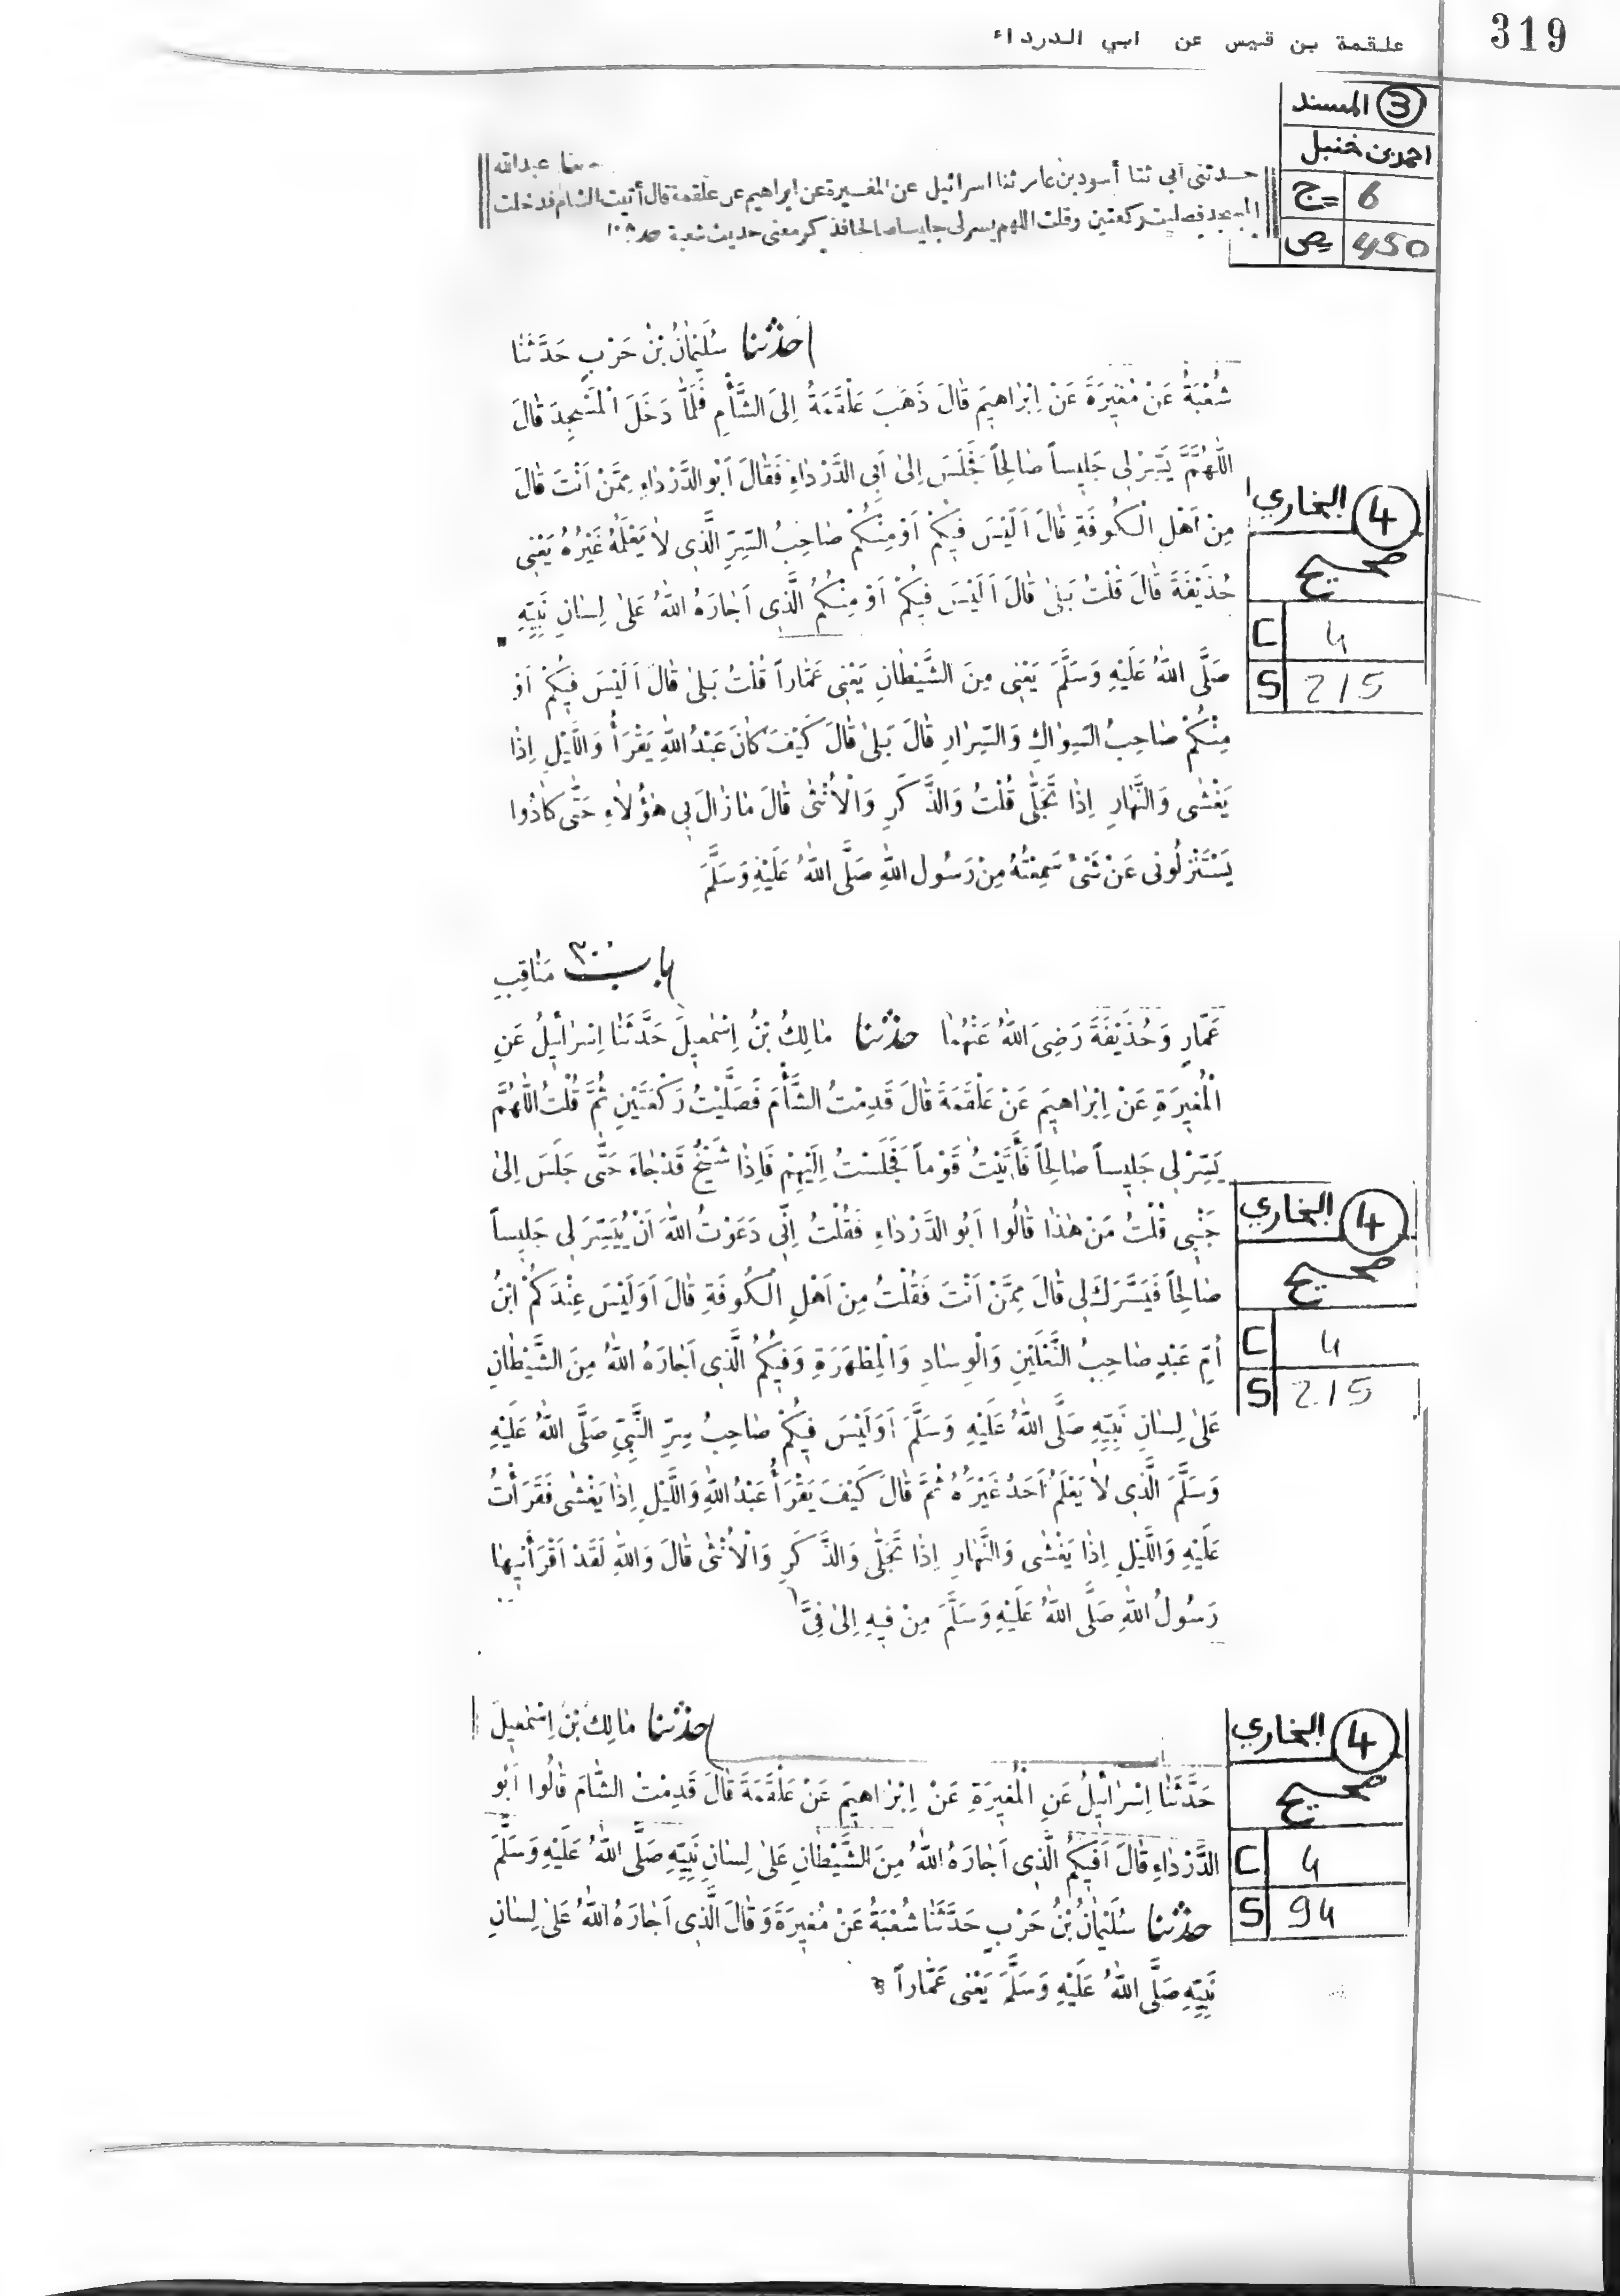 319
علقمة بن قيس عن ابي الدرداء
3 المسند
احمد بن حنبل
ج= 6
ص= 450
ثنا عبدالله
حدثني أبي ثنا أسود بن عامر ثنا اسرائيل عن المغيرة عن ابراهيم عن علقمة قال أتيت الشام فدخلت
المسجد فصليت ركعتين وقلت اللهم يسر لي جليسا صالحا فذكر معنى حديث شعبة حدثنا
حَدَّثَنَا سُلَيْمَانُ بْنُ حَرْبٍ حَدَّثَنَا
شُعْبَةُ عَنْ مُغِيرَةَ عَنْ اِبْرَاهِيمَ قَالَ ذَهَبَ عَلْقَمَةُ اِلَى الشَّأْمِ فَلَمَّا دَخَلَ الْمَسْجِدَ قَالَ
اللّٰهُمَّ يَسِّرْ لِي جَلِيساً صَالِحاً فَجَلَسَ اِلىٰ اَبِي الدَّرْدَاءِ فَقَالَ اَبُو الدَّرْدَاءِ مِمَّنْ اَنْتَ قَالَ
مِنْ اَهْلِ الْكُوفَةِ قَالَ اَلَيْسَ فِيكُمْ اَوْ مِنْكُمْ صَاحِبُ السِّرِّ الَّذِى لَا يَعْلَمُهُ غَيْرُهُ يَعْنِى
حُذَيْفَةَ قَالَ قُلْتُ بَلىٰ قَالَ اَلَيْسَ فِيكُمْ اَوْ مِنْكُمُ الَّذِى اَجَارَهُ اللّٰهُ عَلىٰ لِسَانِ نَبِيِّهِ
صَلَّى اللّٰهُ عَلَيْهِ وَسَلَّمَ يَعْنِى مِنَ الشَّيْطَانِ يَعْنِى عَمَّاراً قُلْتُ بَلىٰ قَالَ اَلَيْسَ فِيكُمْ اَوْ
مِنْكُمْ صَاحِبُ السِّوَاكِ وَالسِّرَارِ قَالَ بَلىٰ قَالَ كَيْفَ كَانَ عَبْدُ اللّٰهِ يَقْرَأُ وَاللَّيْلِ اِذَا
يَغْشىٰ وَالنَّهَارِ اِذَا تَجَلّٰى قُلْتُ وَالذَّكَرِ وَالْاُنْثىٰ قَالَ مَا زَالَ بِي هٰؤُلَاءِ حَتّٰى كَادُوا
يَسْتَنْزِلُونِى عَنْ شَىْءٍ سَمِعْتُهُ مِنْ رَسُولِ اللّٰهِ صَلَّى اللّٰهُ عَلَيْهِ وَسَلَّمَ
4 البخاري
صحيح
C 4
S 215
باب مَنَاقِبِ
عَمَّارٍ وَحُذَيْفَةَ رَضِىَ اللّٰهُ عَنْهُمَا حَدَّثَنَا مَالِكُ بْنُ اِسْمٰعِيلَ حَدَّثَنَا اِسْرَائِيلُ عَنِ
الْمُغِيرَةِ عَنْ اِبْرَاهِيمَ عَنْ عَلْقَمَةَ قَالَ قَدِمْتُ الشَّأْمَ فَصَلَّيْتُ رَكْعَتَيْنِ ثُمَّ قُلْتُ اللّٰهُمَّ
يَسِّرْ لِي جَلِيساً صَالِحاً فَأَتَيْتُ قَوْماً فَجَلَسْتُ اِلَيْهِمْ فَاِذَا شَيْخٌ قَدْ جَاءَ حَتّٰى جَلَسَ اِلىٰ
جَنْبِى قُلْتُ مَنْ هٰذَا قَالُوا اَبُو الدَّرْدَاءِ فَقُلْتُ اِنِّى دَعَوْتُ اللّٰهَ اَنْ يُيَسِّرَ لِى جَلِيساً
صَالِحاً فَيَسَّرَكَ لِى قَالَ مِمَّنْ اَنْتَ فَقُلْتُ مِنْ اَهْلِ الْكُوفَةِ قَالَ اَوَلَيْسَ عِنْدَكُمْ ابْنُ
اُمِّ عَبْدٍ صَاحِبُ النَّعْلَيْنِ وَالْوِسَادِ وَالْمِطْهَرَةِ وَفِيكُمُ الَّذِى اَجَارَهُ اللّٰهُ مِنَ الشَّيْطَانِ
عَلىٰ لِسَانِ نَبِيِّهِ صَلَّى اللّٰهُ عَلَيْهِ وَسَلَّمَ اَوَلَيْسَ فِيكُمْ صَاحِبُ سِرِّ النَّبِيِّ صَلَّى اللّٰهُ عَلَيْهِ
وَسَلَّمَ الَّذِى لَا يَعْلَمُ اَحَدٌ غَيْرُهُ ثُمَّ قَالَ كَيْفَ يَقْرَأُ عَبْدُ اللّٰهِ وَاللَّيْلِ اِذَا يَغْشىٰ فَقَرَأْتُ
عَلَيْهِ وَاللَّيْلِ اِذَا يَغْشىٰ وَالنَّهَارِ اِذَا تَجَلّٰى وَالذَّكَرِ وَالْاُنْثىٰ قَالَ وَاللّٰهِ لَقَدْ اَقْرَأَنِيهَا
رَسُولُ اللّٰهِ صَلَّى اللّٰهُ عَلَيْهِ وَسَلَّمَ مِنْ فِيهِ اِلىٰ فِىَّ
4 البخاري
صحيح
C 4
S 215
حَدَّثَنَا مَالِكُ بْنُ اِسْمٰعِيلَ
حَدَّثَنَا اِسْرَائِيلُ عَنِ الْمُغِيرَةِ عَنْ اِبْرَاهِيمَ عَنْ عَلْقَمَةَ قَالَ قَدِمْتُ الشَّامَ قَالُوا اَبُو
الدَّرْدَاءِ قَالَ اَفِيكُمُ الَّذِى اَجَارَهُ اللّٰهُ مِنَ الشَّيْطَانِ عَلىٰ لِسَانِ نَبِيِّهِ صَلَّى اللّٰهُ عَلَيْهِ وَسَلَّمَ
حَدَّثَنَا سُلَيْمَانُ بْنُ حَرْبٍ حَدَّثَنَا شُعْبَةُ عَنْ مُغِيرَةَ وَقَالَ الَّذِى اَجَارَهُ اللّٰهُ عَلىٰ لِسَانِ
نَبِيِّهِ صَلَّى اللّٰهُ عَلَيْهِ وَسَلَّمَ يَعْنِى عَمَّاراً
4 البخاري
صحيح
C 4
S 94